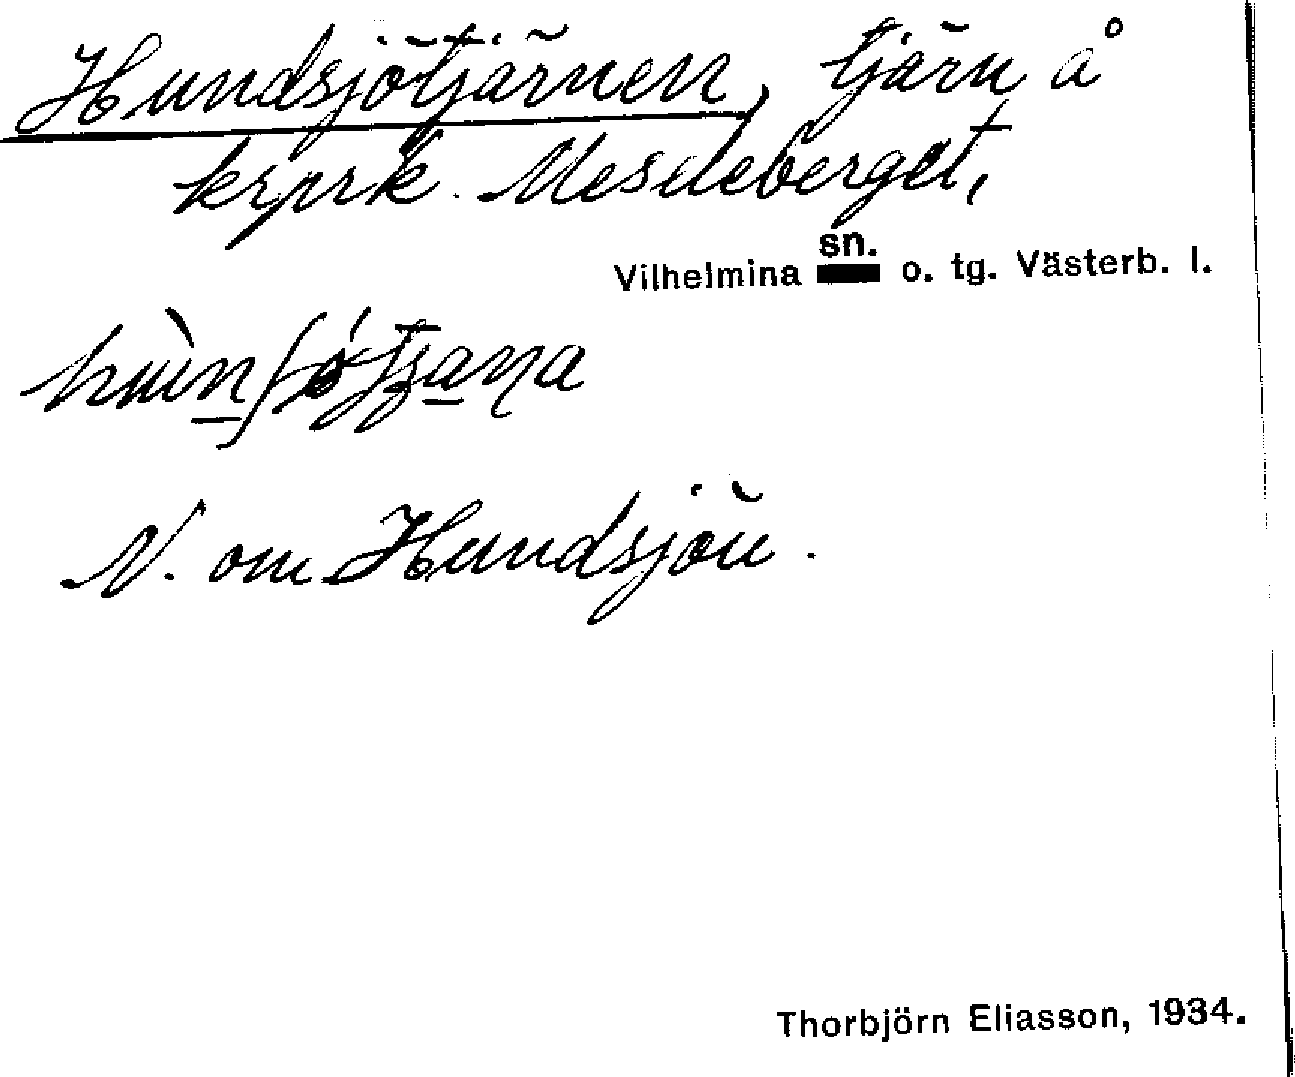 Hundsjötjärnen, tjärn å
krprk. Meseleberget,
Vilhelmina sn. o. tg. Västerb. l.
N. om Hundsjön.
Thorbjörn Eliasson, 1934.